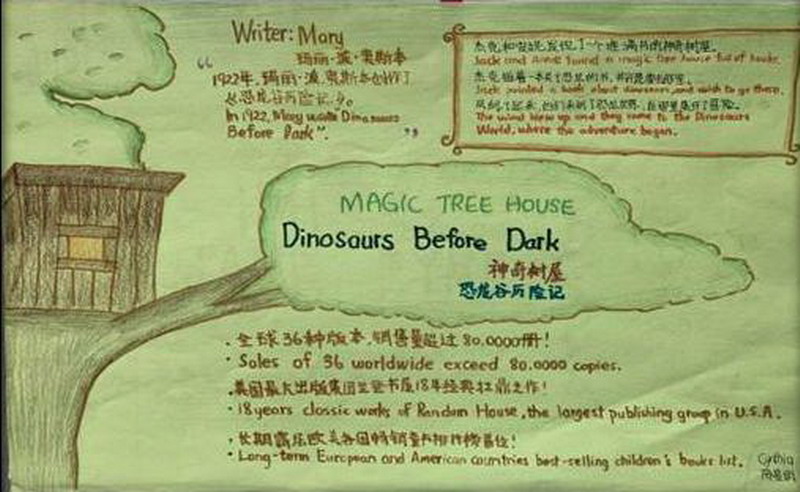 Writer: Mary
玛丽·波·奥斯本
“ 1922年,玛丽·波.奥斯本创作了
《恐龙谷历险记》。
In 1922, Mary wrote Dinosaurs
Before Dark”.
杰克和安妮发现了一个堆满书的神奇树屋。
Jack and Annie found a magic tree house full of books.
杰克指着一本关于恐龙的书,
Jack pointed a book about dinosaurs, and wish to go there.
风刮了起来,他们来到了恐龙世界,在那里展开了冒险。
The wind blew up and they came to the Dinosaurs
World, where the adventure began.
MAGIC TREE HOUSE
Dinosaurs Before Dark
神奇树屋
恐龙谷历险记
· 全球36种版本,销售量超过80.0000册!
· Sales of 36 worldwide exceed 80.0000 copies.
· 美国最大出版集团兰登书屋18年经典扛鼎之作!
· 18years classic works of Random House, the largest publishing group in U.S.A.
· 长期霸占欧美各国畅销童书排行榜首位!
· Long-term European and American countries best-selling children's books list.
Cynthia